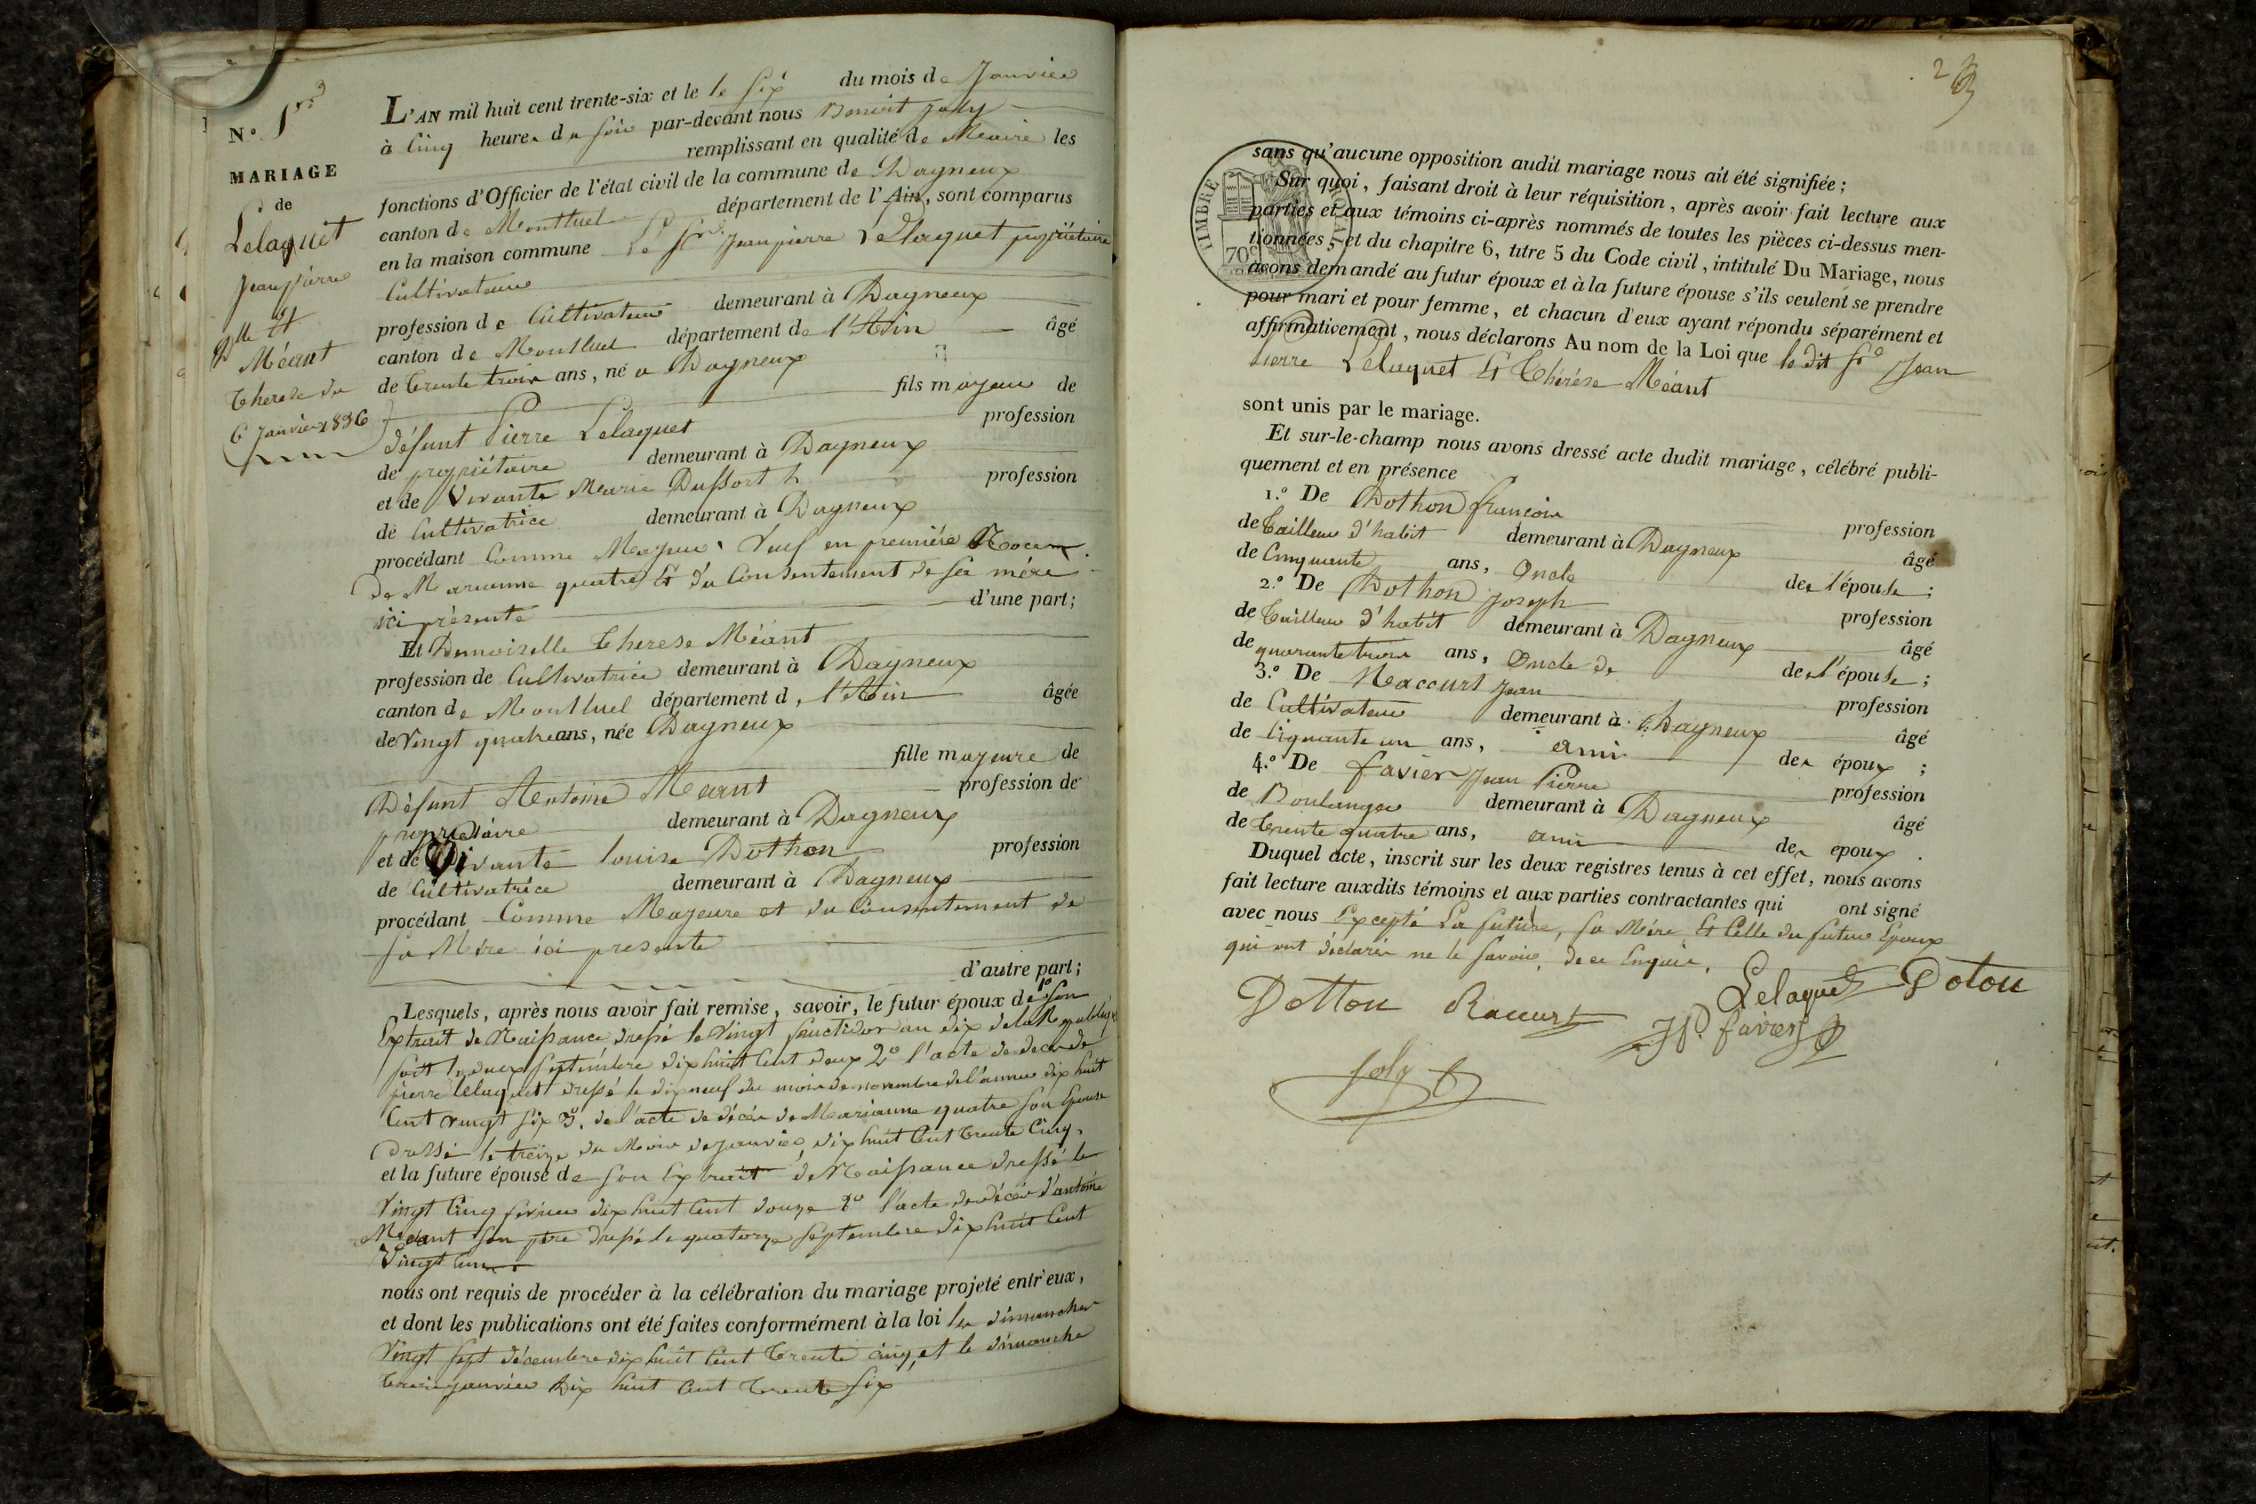 N.o 1er
MARIAGE
de
Lelaquet
Jean pierre
Et
Dlle Méant
Therese du
6 Janvier 1836
L'AN mil huit cent trente-six et le le six du mois de Janvier
à Cinq heures du soir par-devant nous Benoit Joly
remplissant en qualité de Maire les
fonctions d'Officier de l'état civil de la commune de Dagneux
canton de Montluel département de l'Ain, sont comparus
en la maison commune Le Sr Jean pierre Lelaquet propriétaire
Cultivateur
profession de Cultivateur demeurant à Dagneux
canton de Montluel département de l'Ain âgé
de trente trois ans, né a Dagneux
fils majeur de
défunt Pierre Lelaquet profession
de propriétaire demeurant à Dagneux
et de Vivante Marie Dussort profession
de Cultivatrice demeurant à Dagneux
procédant Comme Majeur, Veuf en première Noces
De Marianne quatre Et du Consentement de sa mère
ici présente d'une part;
Et Demoiselle Therese Méant
profession de Cultivatrice demeurant à Dagneux
canton de Montluel département de l'Ain âgée
de Vingt quatre ans, née Dagneux
fille majeure de
Défunt Antoine Méant profession de
propriétaire demeurant à Dagneux
et de Vivante louise Dothon profession
de Cultivatrice demeurant à Dagneux
procédant Comme Majeure et du Consentement de
sa Mère ici presente
d'autre part;
Lesquels, après nous avoir fait remise, savoir, le futur époux de 1o son
Extrait de Naissance dressé le Vingt fructidor an dix de la République
soit le deux septembre dix huit Cent deux 2o l'acte de deces de
pierre lelaquet dressé le dix neuf du mois de novembre de l'annee dix huit
Cent vingt six 3o. de l'acte de décés de Marianne quatre son Epouse
Dressé le treize du Mois de janvier dix huit Cent trente Cinq.
et la future épouse de son Extrait de Naissance dressé le
Vingt Cinq fevrier dix huit Cent douze 2o l'acte de décés d'antoine
Méant son père dressé le quatorze septembre dix huit Cent
Vingt
nous ont requis de procéder à la célébration du mariage projeté entr'eux,
et dont les publications ont été faites conformément à la loi les dimanches
Vingt sept décembre dix huit Cent trente cinq, et le dimanche
trois janvier Dix huit Cent trente six
2
TIMBRE ROYAL
70c
sans qu'aucune opposition audit mariage nous ait été signifiée;
Sur quoi, faisant droit à leur réquisition, après avoir fait lecture aux
parties et aux témoins ci-après nommés de toutes les pièces ci-dessus men-
tionnées, et du chapitre 6, titre 5 du Code civil, intitulé Du Mariage, nous
avons demandé au futur époux et à la future épouse s'ils veulent se prendre
pour mari et pour femme, et chacun d'eux ayant répondu séparément et
affirmativement, nous déclarons Au nom de la Loi que le dit Sr Jean
Pierre Lelaquet Et Thérèse Méant
sont unis par le mariage.
Et sur-le-champ nous avons dressé acte dudit mariage, célébré publi-
quement et en présence
1.o De Dothon françois profession
de Tailleur d'habit demeurant à Dagneux âgé
de Cinquante ans, Oncle de l'épouse;
2.o De Dothon Joseph profession
de Tailleur d'habit demeurant à Dagneux âgé
de quarante trois ans, Oncle de de l'épouse;
3.o De Raccurt Jean profession
de Cultivateur demeurant à Dagneux âgé
de Ciquante un ans, ami des époux;
4.o De favier Jean Pierre profession
de Boulanger demeurant à Dagneux âgé
de Trente quatre ans, ami des epoux.
Duquel acte, inscrit sur les deux registres tenus à cet effet, nous avons
fait lecture auxdits témoins et aux parties contractantes qui ont signé
avec nous Excepté La future, sa Mère Et Celle du futur Epoux
qui ont déclarés ne le savoir, de ce Enquis.
Dotton Raccurt Lelaquet Doton
J P. favier
Joly